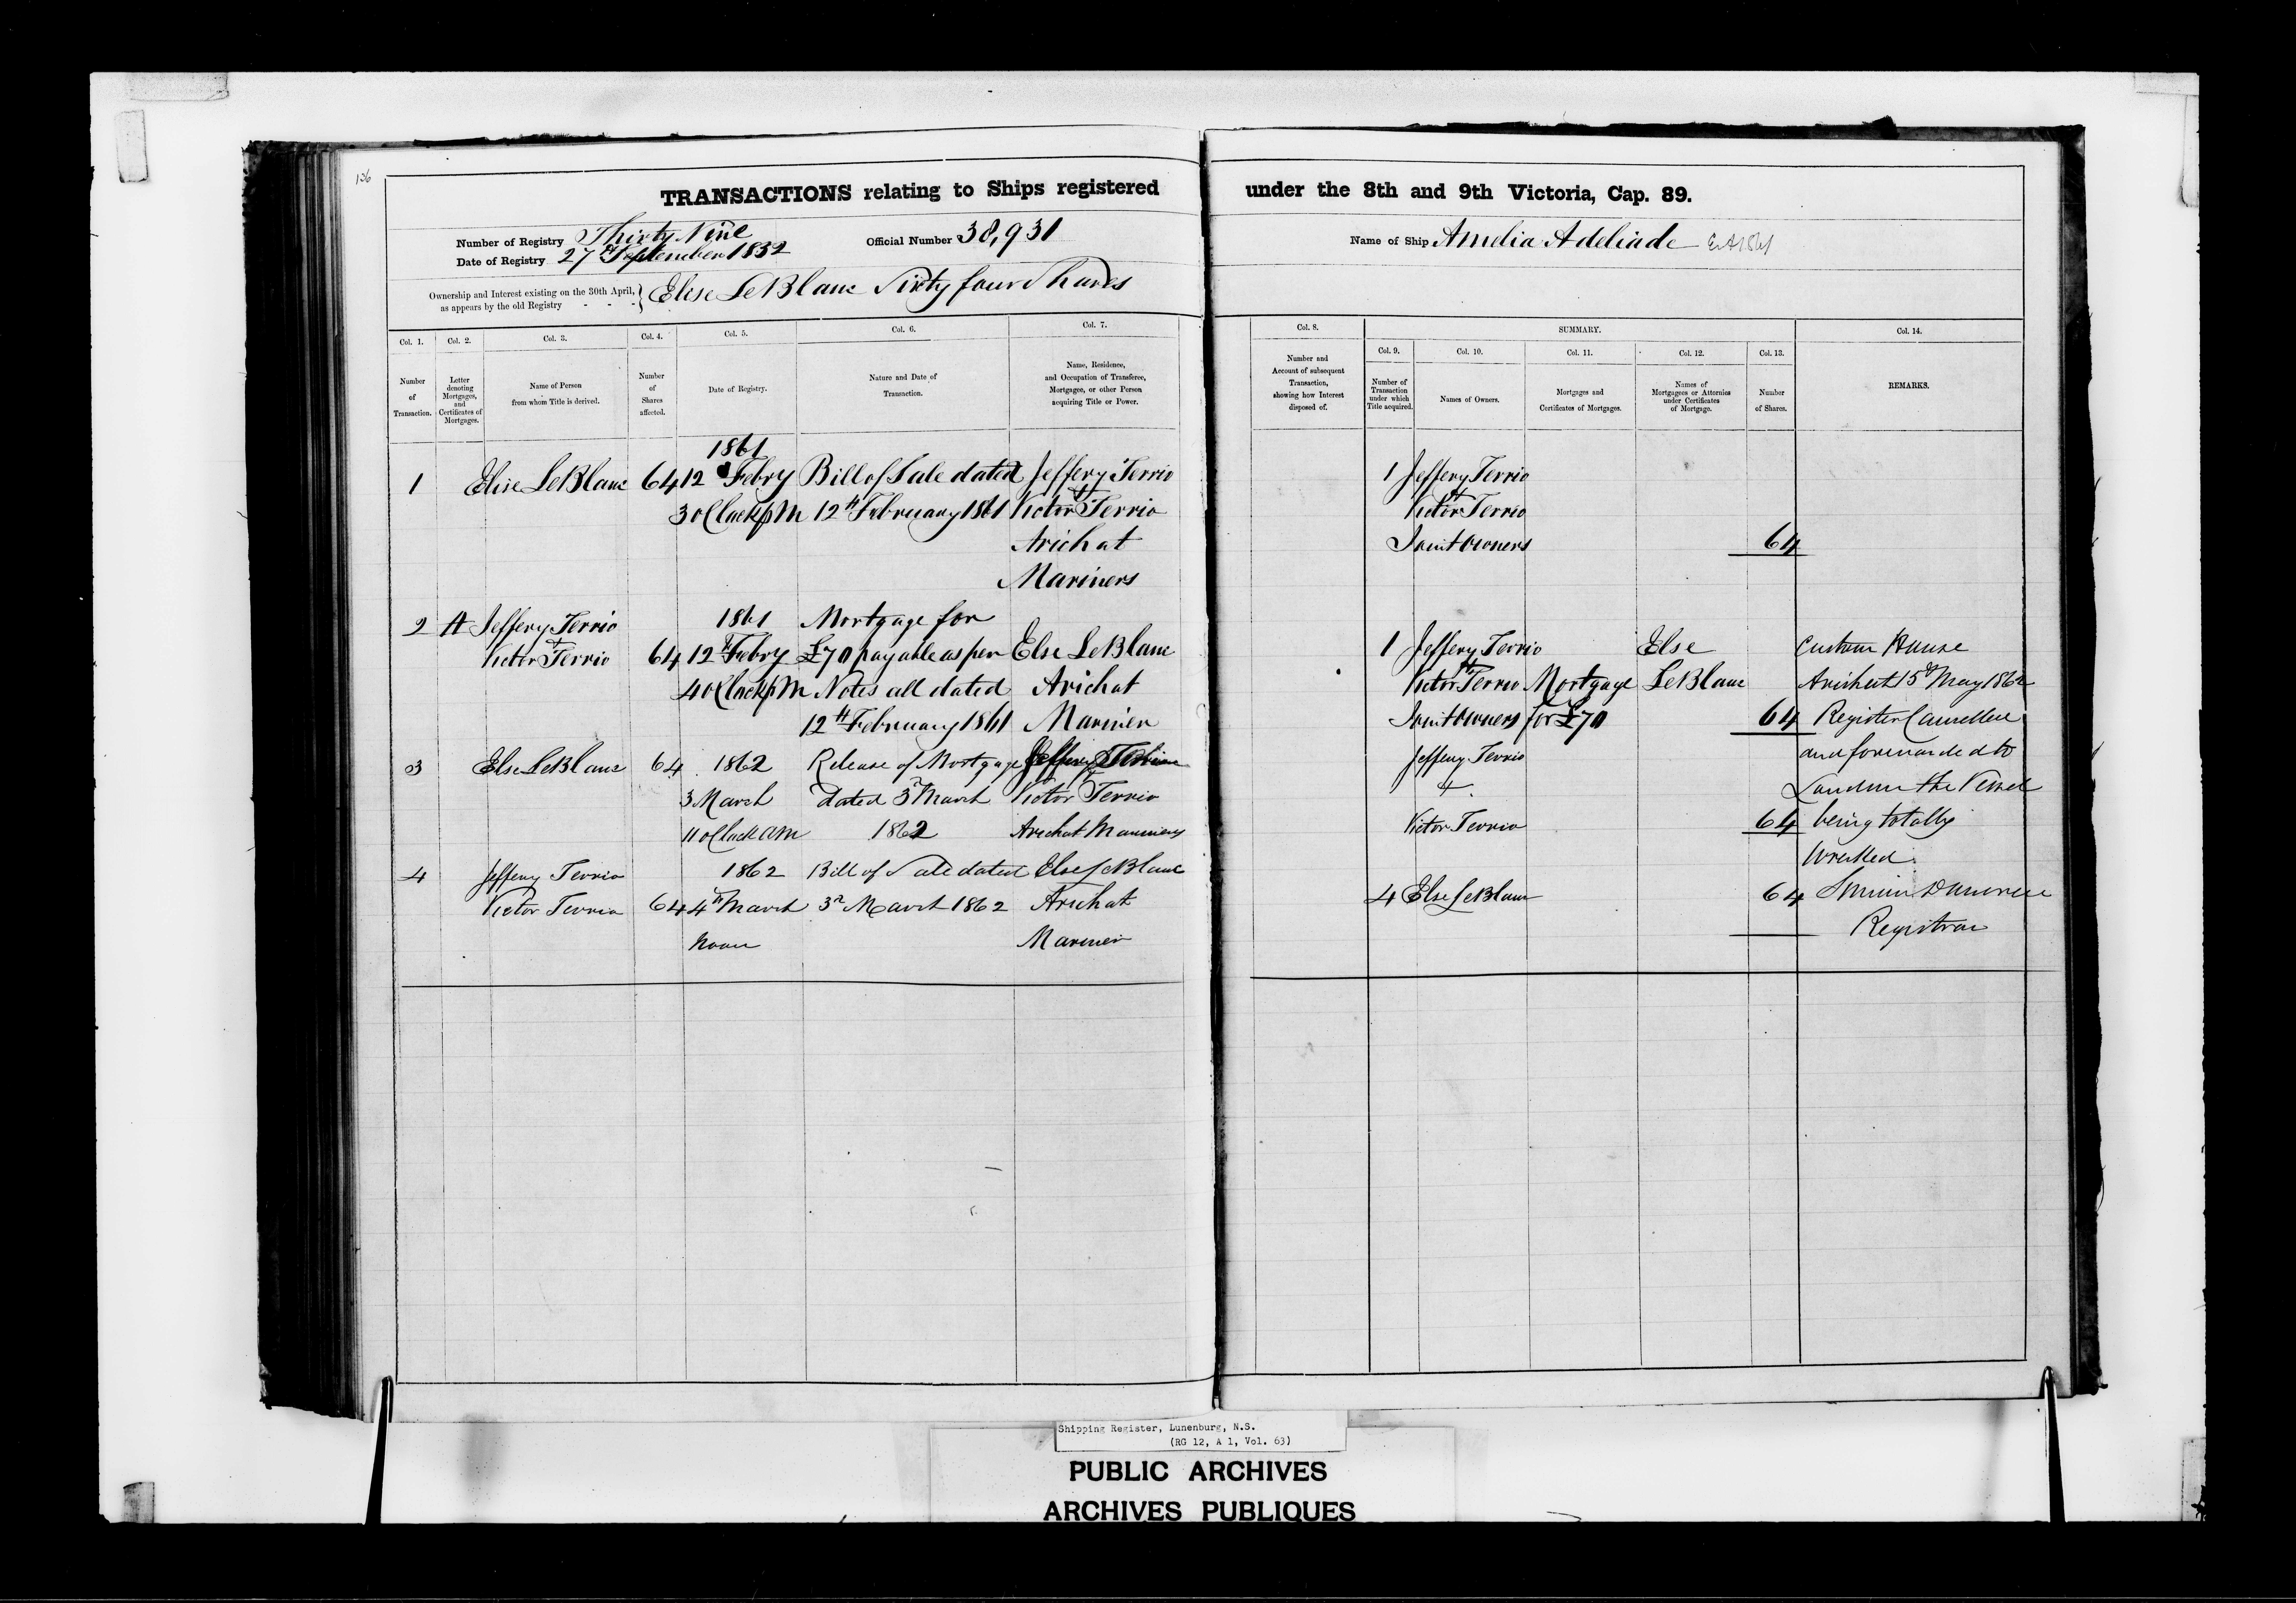 136
TRANSACTIONS relating to Ships registered under the 8th and 9th Victoria, Cap. 89.
Number of Registry Thirty Nine
Date of Registry 27th September 1852
Official Number 38,931
Name of Ship Amelia Adeliade
Ownership and Interest existing on the 30th April, as appears by the old Registry - - - } Elise LeBlanc Sixty four Shares
Col. 1. Number of Transaction.
Col. 2. Letter denoting Mortgages, and Certificates of Mortgages.
Col. 3. Name of Person from whom Title is derived.
Col. 4. Number of Shares affected.
Col. 5. Date of Registry.
Col. 6. Nature and Date of Transaction.
Col. 7. Name, Residence, and Occupation of Transferee, Mortgagee, or other Person acquiring Title or Power.
Col. 8. Number and Account of subsequent Transaction, showing how Interest disposed of.
SUMMARY.
Col. 9. Number of Transaction under which Title acquired.
Col. 10. Names of Owners.
Col. 11. Mortgages and Certificates of Mortgages.
Col. 12. Names of Mortgagees or Attornies under Certificates of Mortgage.
Col. 13. Number of Shares.
Col. 14. REMARKS.
1861
1 Elise LeBlanc 64 12 Febry Bill of Sale dated Jeffery Terrio
3 oClock pM 12th February 1861 Victor Terrio
Arichat
Mariners
2 A Jeffery Terrio 1861 Mortgage for
+ Victor Terrio 64 12th Febry £70 payable as per Else LeBlanc
4 oClock pM Notes all dated Arichat
12th February 1861 Mariner
3 Else LeBlanc 64 1862 Release of Mortgage Jeffery Terrio
3 March dated 3rd March Victor Terrio
11 oClock AM 1862 Arichat Mariners
4 Jeffery Terrio 1862 Bill of Sale dated Else LeBlanc
Victor Terrio 64 4th March 3rd March 1862 Arichat
Noon Mariner
1 Jeffery Terrio
+
Victor Terrio
Joint Owners 64
1 Jeffery Terrio Else
+
Victor Terrio Mortgage LeBlanc
Joint Owners for £70 64
Jeffery Terrio
+
Victor Terrio 64
4 Else LeBlanc 64
Custom House
Arichat 15th May 1862
Register Cancelled
and forwarded to
London the Vessel
being totally
Wrecked
Registrar
Shipping Register, Lunenburg, N.S.
(RG 12, A 1, Vol. 63)
PUBLIC ARCHIVES
ARCHIVES PUBLIQUES